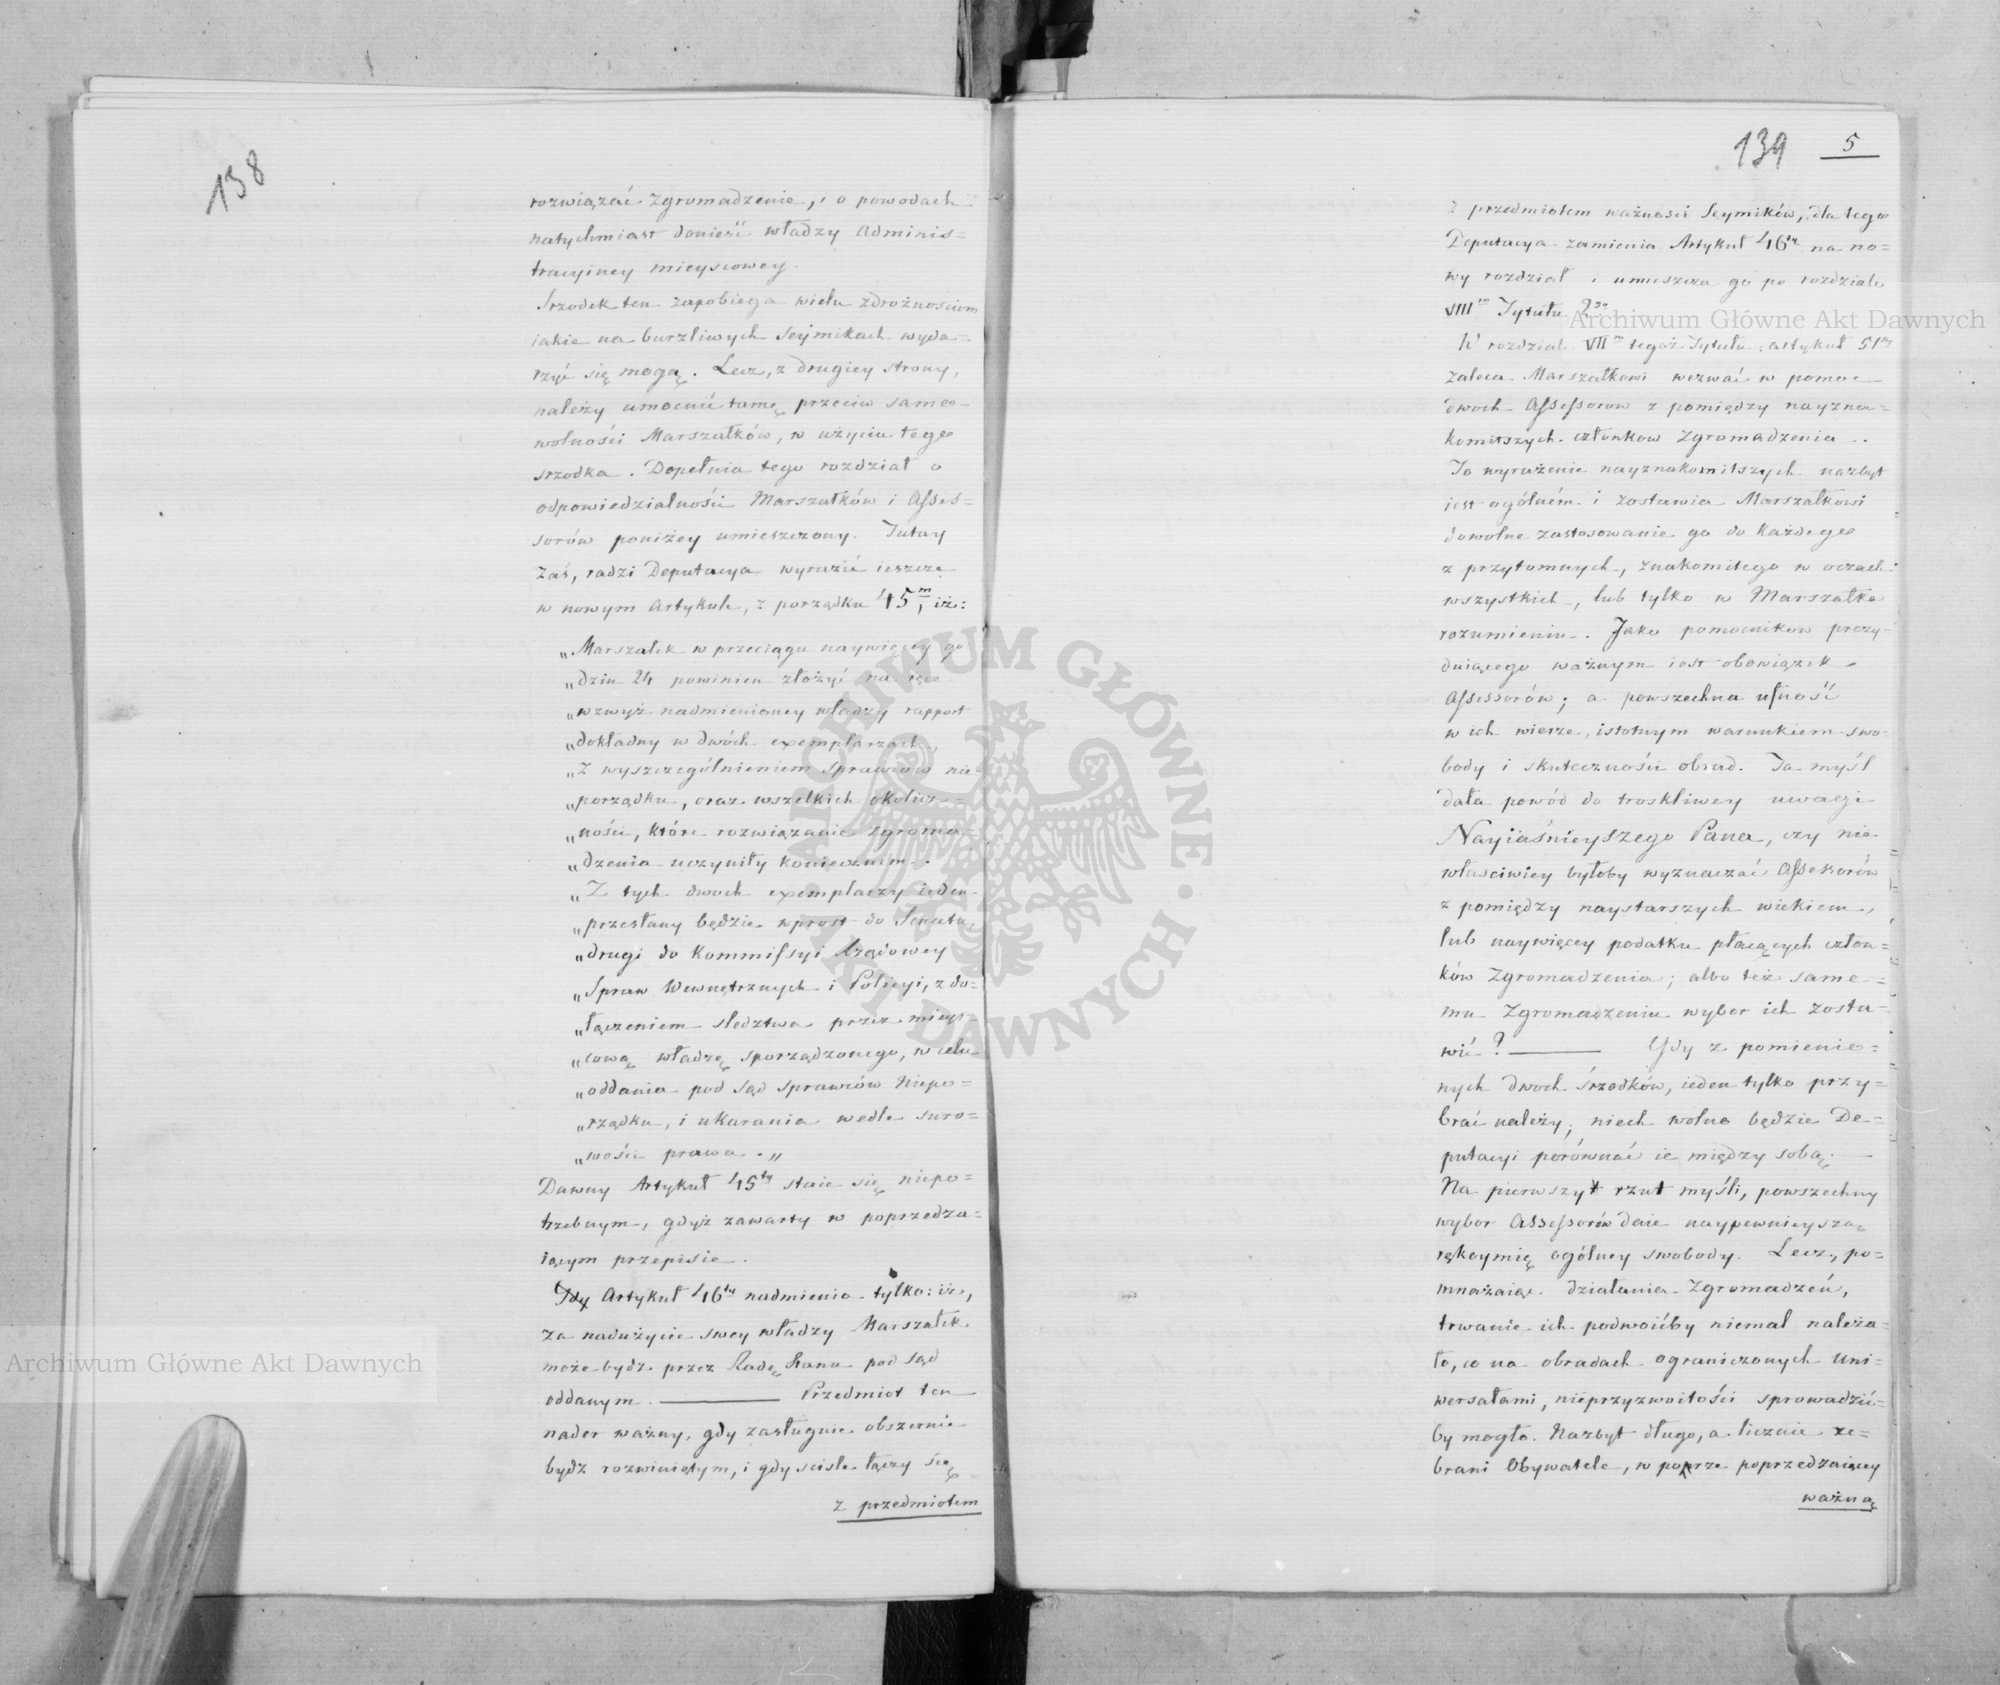 138
rozwiązać Zgromadzenie, i o powodach
natychmiast donieść władzy Adminis=
tracyiney mieyscowey.
Srzodek ten zapobiega wielu zdrożnościom
iakie na burzliwych Seymikach wyda=
rzyć się mogą. Lecz, z drugiey strony,
należy umocnić tamę przeciw samo=
wolności Marszałków, w użyciu tego
srzodka. Dopełnia tego rozdział o
odpowiedzialności Marszałków i Asses=
sorów poniżey umieszczony. Tutay
zaś, radzi Deputacya wyrazić ieszcze
w nowym Artykule, z porządku 45m, iż:
„Marszałek w przeciągu naywięcey go
„dzin 24 powinien złożyć na ręce
„wzwyż nadmienioney władzy rapport
„dokładny w dwóch exemplarzach,
„z wyszczególnieniem sprawców nie=
„porządku, oraz wszelkich okolicz=
„ności, które rozwiązanie Zgroma=
„dzenia uczyniły koniecznem.
„Z tych dwoch exemplarzy ieden
„przesłany będzie wprost do Senatu,
„drugi do Kommissyi Rządowey
„Spraw Wewnętrznych i Policyi, z do=
„łączeniem sledztwa przez mieys=
„cową władzę sporządzonego, w celu
„oddania pod sąd sprawców Niepo=
„rządku, i ukarania wedle suro=
„wości prawa.„
Dawny Artykuł 45ty staie się niepo=
trzebnym, gdyż zawarty w poprzedza=
iącym przepisie.
Artykuł 46ty nadmienia tylko: iż,
za nadużycie swey władzy Marszałek
może bydź przez Radę Stanu pod sąd
oddanym. ——— Przedmiot ten
nader ważny, gdy zasługuie obszernie
bydź rozwiniętym, i gdy scisle łączy się
z przedmiotem
139 5
z przedmiotem ważności Seymików, dla tego
Deputacya zamienia Artykuł 46ty na no=
wy rozdział i umieszcza go po rozdziale
VIIIm Tytułu 2go
W rozdziale VIIm tegoż Tytułu: artykuł 51ny
zaleca Marszałkowi wezwać w pomoc
dwoch Assessorow z pomiędzy nayzna=
komitszych członkow Zgromadzenia.
To wyrażenie nayznakomitszych nazbyt
iest ogólném i zostawia Marszałkowi
dowolne zastosowanie go do każdego
z przytomnych, znakomitego w oczach
wszystkich, lub tylko w Marszałka
rozumieniu. Jako pomocnikow prezy=
duiącego ważnym iest obowiązek
Assessorów; a powszechna ufność
w ich wierze, istotnym warunkiem swo=
body i skuteczności obrad. Ta myśl
dała powód do troskliwey uwagi
Nayiaśnieyszego Pana, czy nie
właściwiey byłoby wyznaczać Assessorów
z pomiędzy naystarszych wiekiem,
lub naywięcey podatku płacących człon=
ków Zgromadzenia; albo też same=
mu Zgromadzeniu wybor ich zosta=
wić? ——— Gdy z pomienio=
nych dwoch śrzodków, ieden tylko przy=
brać należy; niech wolno będzie De=
putacyi porównać ie między sobą.
Na pierwszy rzut myśli, powszechny
wybor Assessorów daie naypewnieyszą
rękoymię ogólney swobody. Lecz, po=
mnażaiąc działania Zgromadzeń,
trwanie ich podwoićby niemal należa=
ło, co na obradach ograniczonych Uni=
wersałami, nieprzyzwoitości sprowadzić=
by mogło. Nazbyt długo, a licznie ze=
brani Obywatele, w porze poprzedzaiącey
ważną